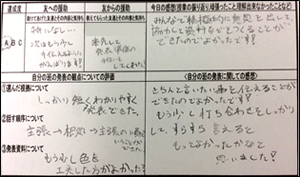 達成度
友への援助
友からの援助
今日の感想(授業の振り返り・頑張ったこと・理解出来なかったことなど)
A B C
みんなで積極的に意見を出して、
協力して資料などをつくることが
できたのでよかったです!
自分の班の発表についての評価
自分の班の発表に関しての感想
①選んだ根拠について
しっかり短くわかりやすく
発表できた。
②話す順序について
主張→根拠→主張の
③発表資料について
もう少し色を
工夫した方がよかった?
きちんと言いたい事を伝えることが
できたのでよかったです!
もう少し打ち合わせをしっかり
して、すらすら言えると
もっとよかったかなと
思いました!